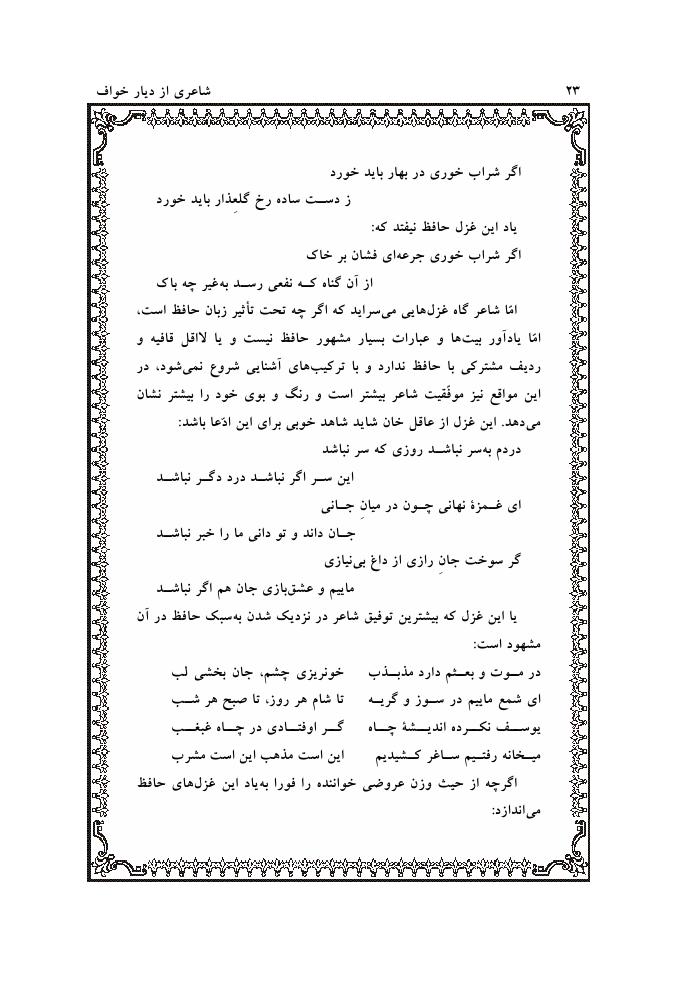 ۲۳ شاعری از دیار خواف
اگر شراب خوری در بهار باید خورد
ز دست ساده رخ گلعِذار باید خورد
یاد این غزل حافظ نیفتد که:
اگر شراب خوری جرعه‌ای فشان بر خاک
از آن گناه که نفعی رسد به‌غیر چه باک
امّا شاعر گاه غزل‌هایی می‌سراید که اگر چه تحت تأثیر زبان حافظ است،
امّا یادآور بیت‌ها و عبارات بسیار مشهور حافظ نیست و یا لااقل قافیه و
ردیف مشترکی با حافظ ندارد و با ترکیب‌های آشنایی شروع نمی‌شود، در
این مواقع نیز موفّقیت شاعر بیشتر است و رنگ و بوی خود را بیشتر نشان
می‌دهد. این غزل از عاقل خان شاید شاهد خوبی برای این ادّعا باشد:
دردم به‌سر نباشد روزی که سر نباشد
این سر اگر نباشد درد دگر نباشد
ای غمزهٔ نهانی چون در میانِ جانی
جان داند و تو دانی ما را خبر نباشد
گر سوخت جانِ رازی از داغ بی‌نیازی
ماییم و عشق‌بازی جان هم اگر نباشد
یا این غزل که بیشترین توفیق شاعر در نزدیک شدن به‌سبک حافظ در آن
مشهود است:
در موت و بعثم دارد مذبذب خونریزی چشم، جان بخشی لب
ای شمع ماییم در سوز و گریه تا شام هر روز، تا صبح هر شب
یوسف نکرده اندیشهٔ چاه گر اوفتادی در چاه غبغب
میخانه رفتیم ساغر کشیدیم این است مذهب این است مشرب
اگرچه از حیث وزن عروضی خواننده را فورا به‌یاد این غزل‌های حافظ
می‌اندازد: